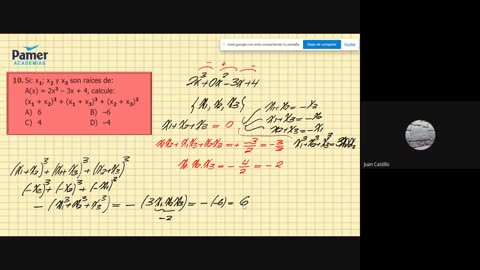 Pamer
ACADEMIAS
meet.google.com está compartiendo tu pantalla.
Dejar de compartir
10. Si: x₁; x₂ y x₃ son raíces de:
A(x) = 2x³ – 3x + 4, calcule:
(x₁ + x₂)³ + (x₁ + x₃)³ + (x₂ + x₃)³
A) 6 B) –6
C) 4 D) –4
– + –
2x³+0x²-3x+4
{x₁, x₂, x₃}
x₁+x₂+x₃ = 0
x₁+x₂=-x₃
x₁+x₃=-x₂
x₂+x₃=-x₁
x₁x₂+x₁x₃+x₂x₃=+ -3/2 = -3/2
x₁³+x₂³+x₃³=3x₁x₂x₃
x₁.x₂.x₃ = - 4/2 = -2
(x₁+x₂)³+(x₁+x₃)³+(x₂+x₃)³
(-x₃)³+(-x₂)³+(-x₁)³
- (x₁³+x₂³+x₃³) = - (3x₁x₂x₃) = -(-6) = 6
-2
Juan Castillo